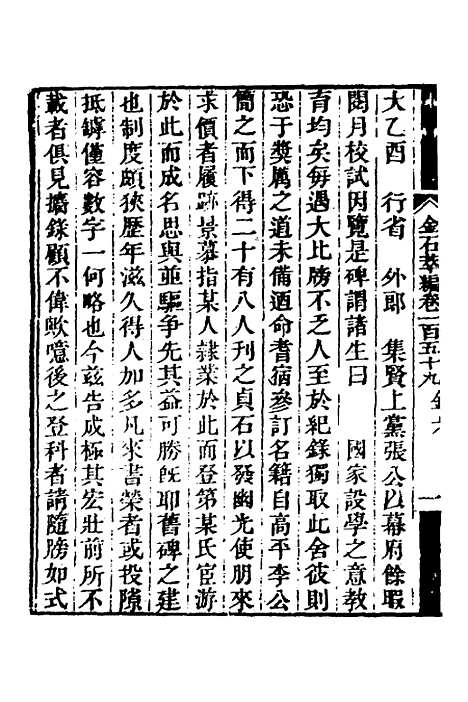 金石萃編卷一百五十九 金六 一
大乙酉 行省 外郎 集賢上黨張公以幕府餘暇
閱月校試因覽是碑謂諸生曰 國家設學之意教
育均矣每遇大比勝不乏人至於紀錄獨取此舍彼則
恐于奬厲之道未備迺命耆宿參訂名籍自高平李公
簡之而下得二十有八人刊之貞石以發幽光使朋來
求價者履跡景慕指某人隸業於此而登第某氏宦游
於此而成名思與並驅爭先其益可勝旣耶舊碑之建
也制度頗狹歷年滋久得人加多凡來書榮者或投隙
抵罅僅容數字一何略也今兹告成極其宏壯前所不
載者俱見攟錄顧不偉歟噫後之登科者請隨牓如式